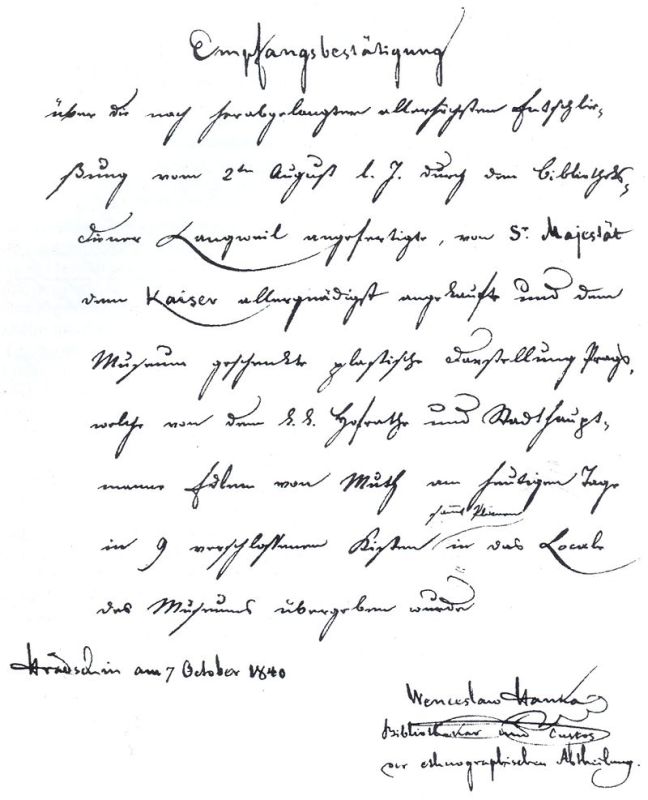 Empfangsbestätigung
über die nach herabgelangter allerhöchsten Entschlie-
ßung vom 2ten August l. J. durch den Bibliotheks-
diener Langweil angefertigte, von Sr Majestät
dem Kaiser allergnädigst angekaufte und dem
Museum geschenkte plastische Darstellung Prags,
welche von dem k. k. Hofrathe und Stadthaupt-
manne Edlem von Muth am heutigen Tage
sammt Plänen
in 9 verschlossenen Kisten in das Locale
des Museums übergeben wurde
Hradschin am 7 October 1840
Wenceslaw Hanka
Bibliothekar und Custos
der ethnographischen Abtheilung.